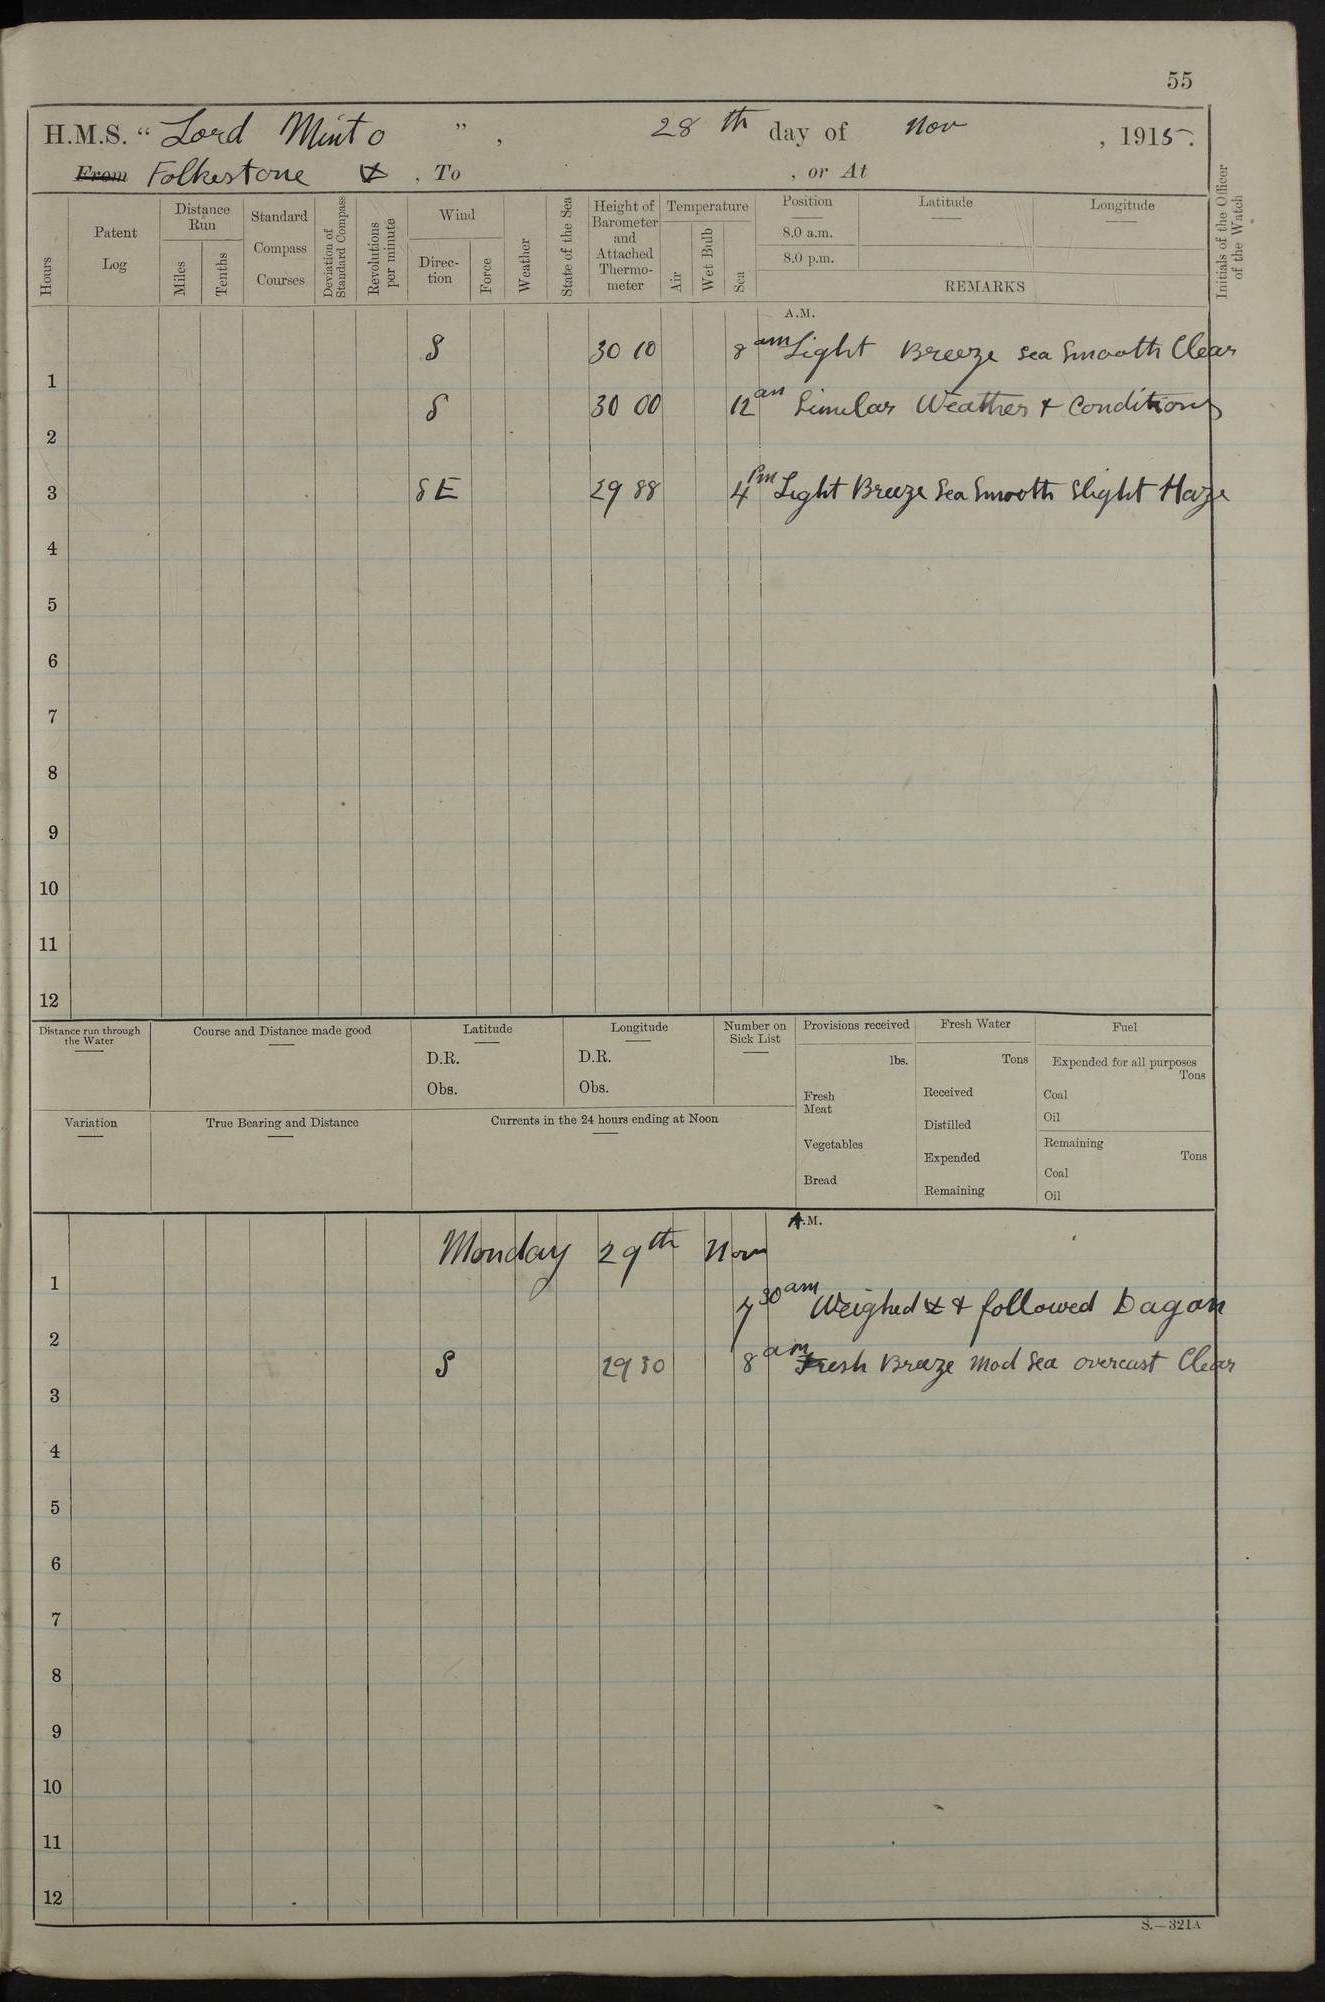 55
H.M.S. “ Lord Minto ” , 28 th day of Nov , 1915.
From Folkestone , To , or At
Hours
Patent
Log
Distance
Run
Miles
Tenths
Standard
Compass
Courses
Deviation of
Standard Compass
Revolutions
per minute
Wind
Direc-
tion
Force
Weather
State of the Sea
Height of
Barometer
and
Attached
Thermo-
meter
Temperature
Air
Wet Bulb
Sea
Position
8.0 a.m.
8.0 p.m.
Latitude
Longitude
REMARKS
Initials of the Officer
of the Watch
A.M.
S 30 10 8 am Light Breeze sea Smooth Clear
1
S 30 00 12 am Similar Weather & Conditions
2
3 SE 29 88 4 Pm Light Breeze Sea Smooth Slight Haze
4
5
6
7
8
9
10
11
12
Distance run through
the Water
Course and Distance made good
Latitude
D.R.
Obs.
Longitude
D.R.
Obs.
Number on
Sick List
Provisions received
lbs.
Fresh
Meat
Vegetables
Bread
Fresh Water
Tons
Received
Distilled
Expended
Remaining
Fuel
Expended for all purposes
Tons
Coal
Oil
Remaining
Tons
Coal
Oil
Variation
True Bearing and Distance
Currents in the 24 hours ending at Noon
A.M.
Monday 29th Nov
1
7 30 am Weighed & followed Dagon
2
S 29 30 8 am Fresh Breeze Mod Sea overcast Clear
3
4
5
6
7
8
9
10
11
12
S.—321A